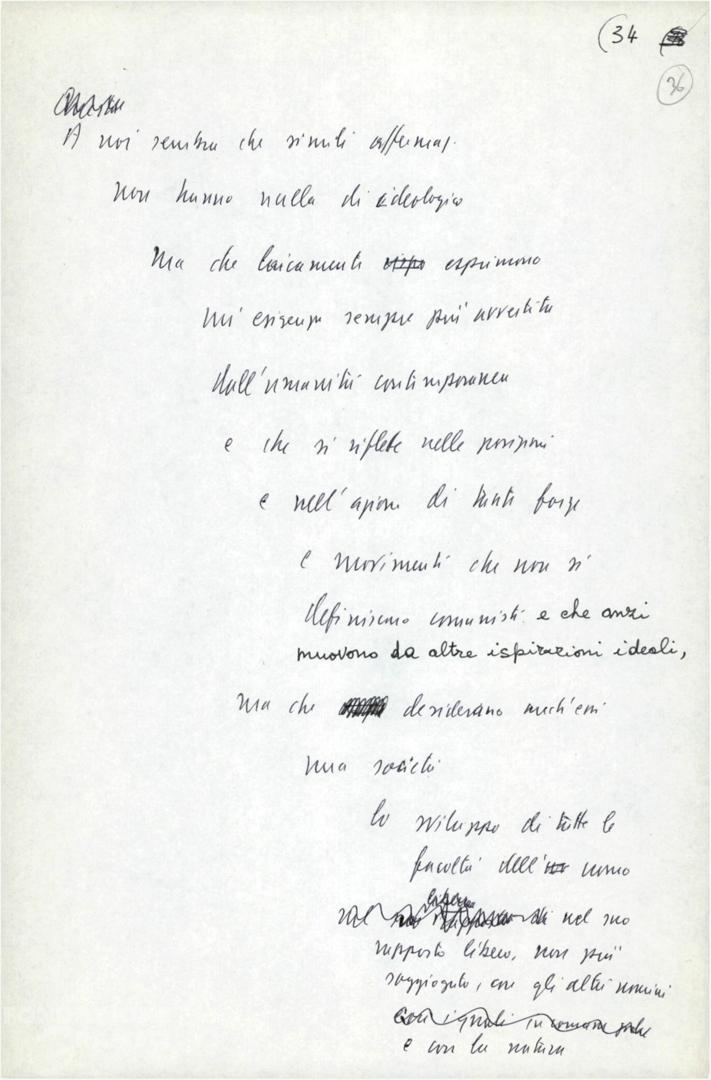 (34
36
A noi sembra che simili affermaz.
non hanno nulla di ideologico
Ma che laicamente esprimono
un' esigenza sempre più avvertita
dall'umanità contemporanea
e che si riflete nelle posizioni
e nell'azione di tante forze
e movimenti che non si
definiscono comunisti e che anzi
muovono da altre ispirazioni ideali,
ma che desiderano anch'essi
una società
lo sviluppo di tutte le
facoltà dell' uomo
nel suo
rapporto libero, non più
soggiogato, con gli altri uomini
con i quali in comune
e con la natura